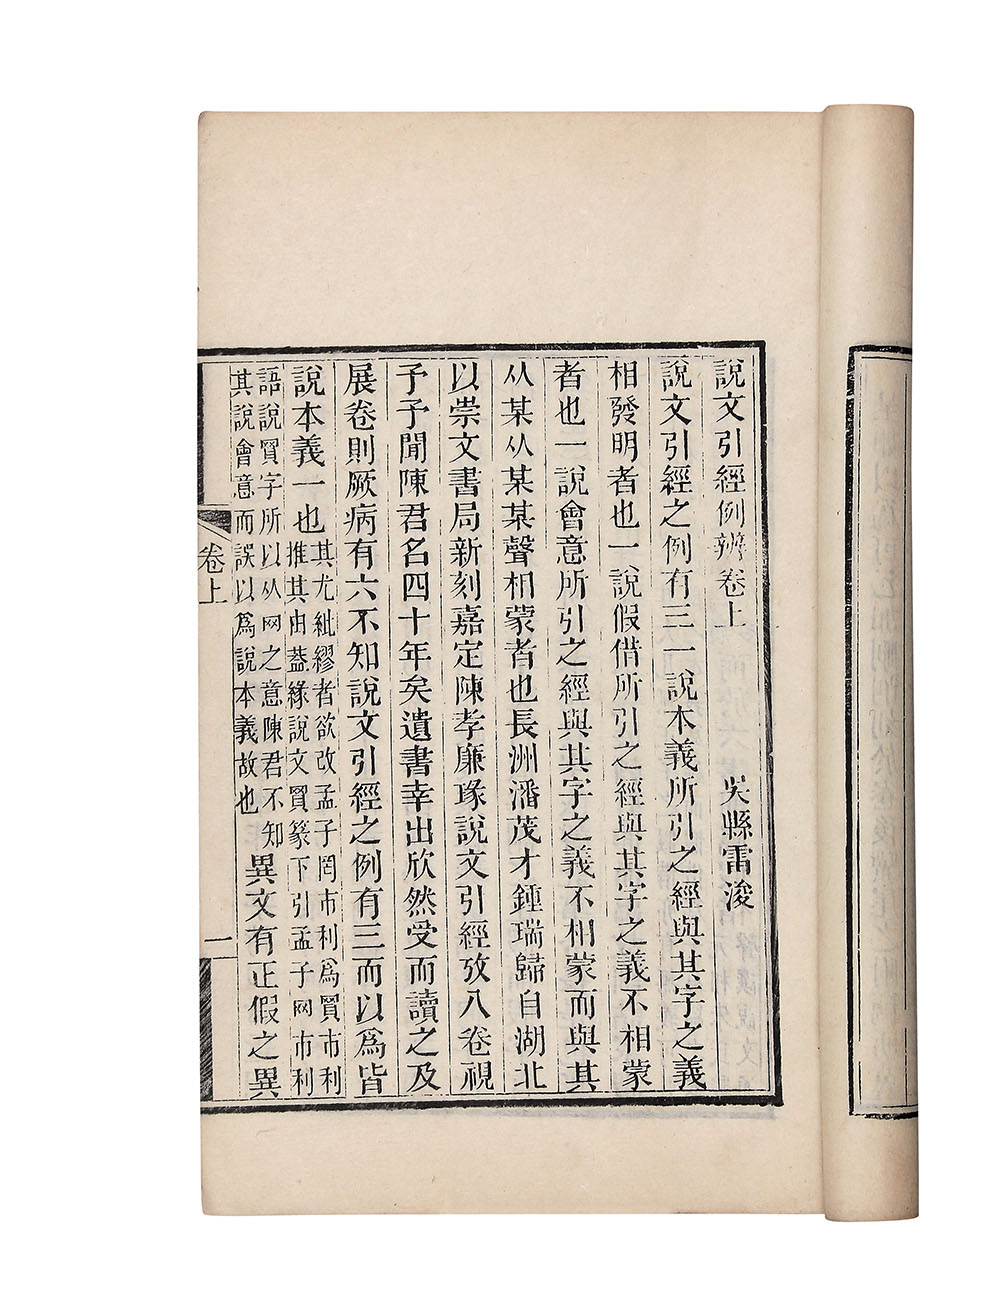 說文引經例辨卷上 吳縣雷浚
說文引經之例有三一說本義所引之經與其字之義
相發明者也一說假借所引之經與其字之義不相蒙
者也一說會意所引之經與其字之義不相蒙而與其
从某从某某聲相蒙者也長洲潘茂才鍾瑞歸自湖北
以崇文書局新刻嘉定陳孝廉瑑說文引經攷八卷視
予予聞陳君名四十年矣遺書幸出欣然受而讀之及
展卷則厥病有六不知說文引經之例有三而以爲皆
說本義一也
其尤紕繆者欲改孟子罔市利爲買市利
推其由葢緣說文買篆下引孟子网市利
語說買字所以从网之意陳君不知
其說會意而誤以爲說本義故也
異文有正假之異
卷上
一